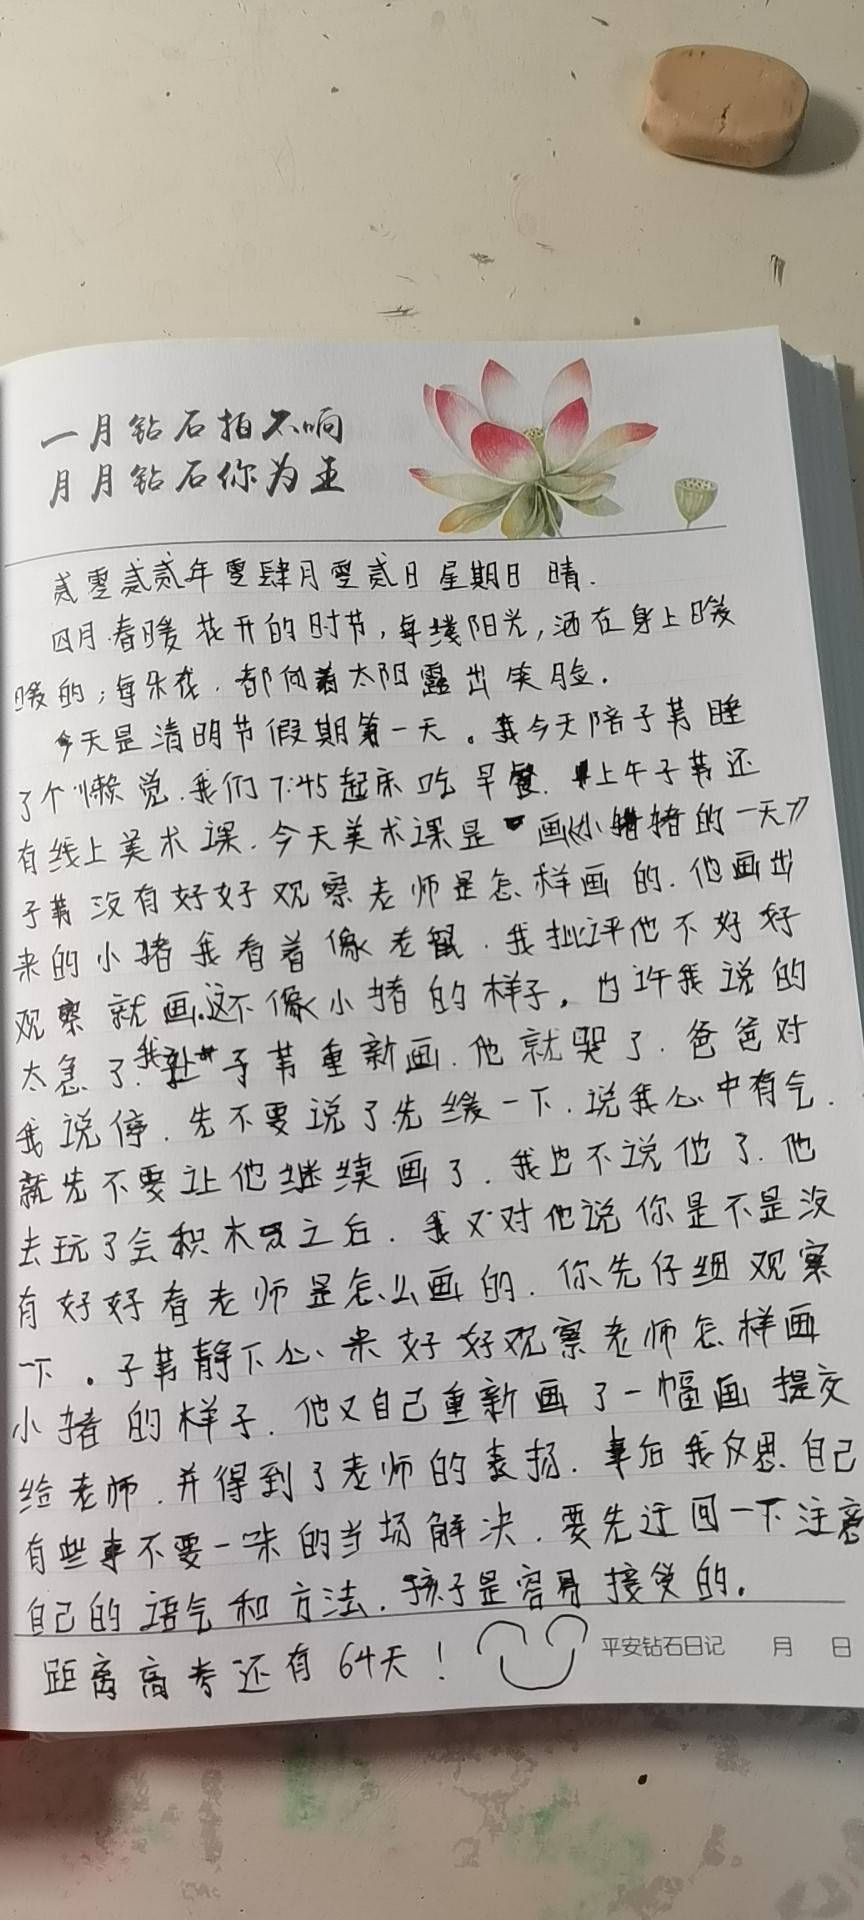 一月钻石拍不响
月月钻石你为王
贰零贰贰年零肆月零贰日星期日 晴.
四月.春暖花开的时节,每缕阳光,洒在身上暖
暖的;每朵花.都向着太阳露出笑脸.
今天是清明节假期第一天。我今天陪子苒睡
了个懒觉.我们7:45起床吃早餐.上午子苒还
有线上美术课.今天美术课是画《小猪猪的一天》
子苒没有好好观察老师是怎样画的.他画出
来的小猪我看着像老鼠.我批评他不好好
观察就画.这不像小猪的样子。也许我说的
太急了.我让子苒重新画.他就哭了.爸爸对
我说停.先不要说了.先缓一下.说我心中有气.
就先不要让他继续画了.我也不说他了.他
去玩了会积木之后.我又对他说你是不是没
有好好看老师是怎么画的.你先仔细观察
一下。子苒静下心来好好观察老师怎样画
小猪的样子.他又自己重新画了一幅画提交
给老师.并得到了老师的表扬.事后我反思.自己
有些事不要一味的当场解决.要先迂回一下注意
自己的语气和方法.孩子是容易接受的。
距离高考还有64天!
平安钻石日记 月 日